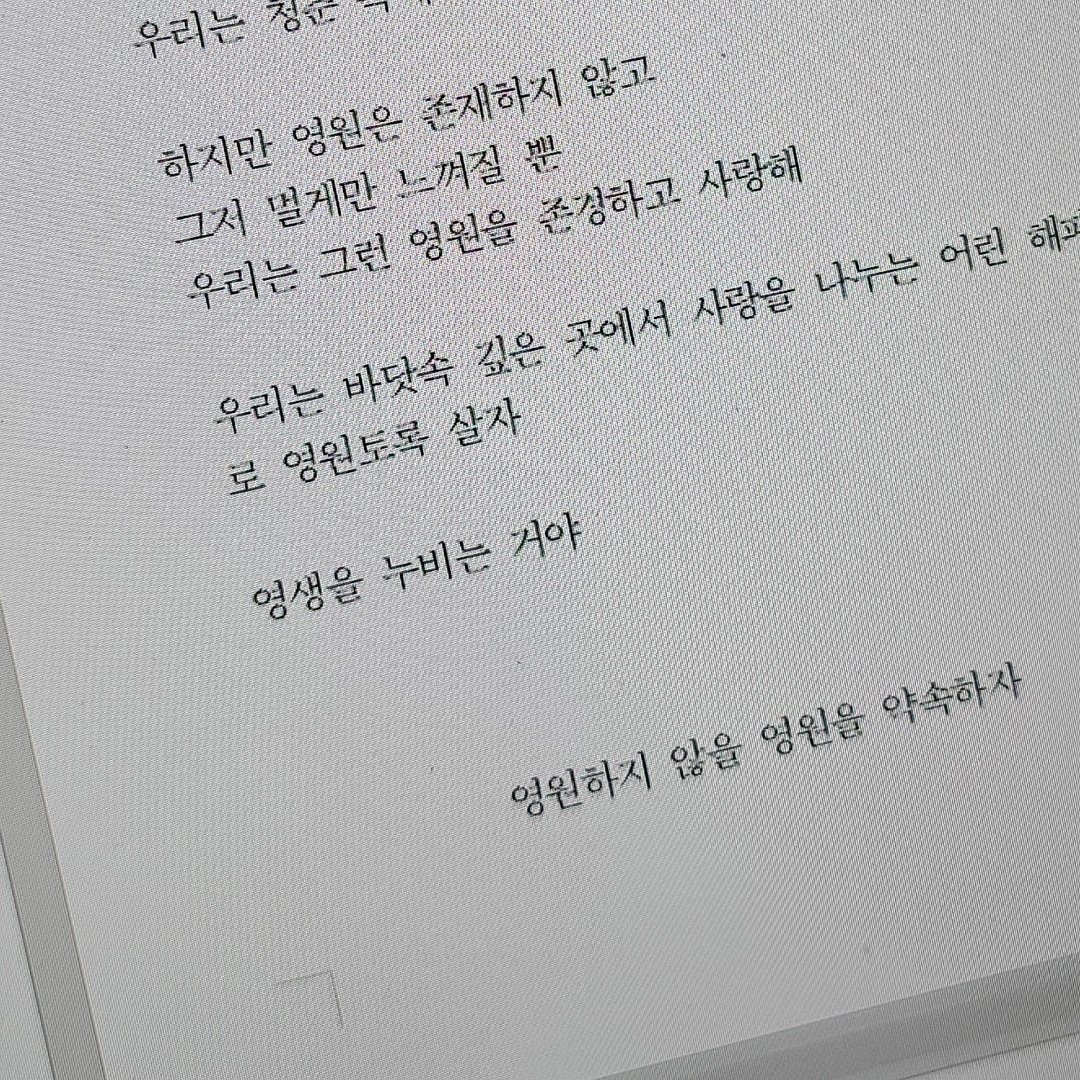 우리는 청춘
하지만 영원은 존재하지 않고
그저 멀게만 느껴질 뿐
우리는 그런 영원을 존경하고 사랑해
우리는 바닷속 깊은 곳에서 사랑을 나누는 어린
로 영원토록 살자
영생을 누비는 거야
영원하지 않을 영원을 약속하자